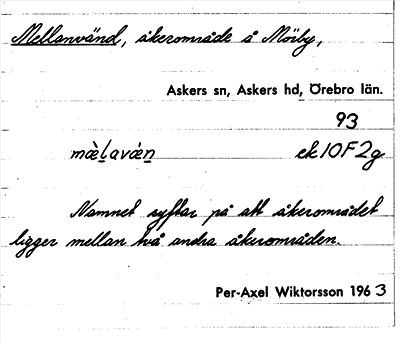 Mellanvänd, åkerområde å Mörby,
Askers sn, Askers hd, Örebro län.
93
mæ̀l̲avæ̀n̲ ek10F2g
Namnet syftar på att åkerområdet
ligger mellan två andra åkerområden.
Per-Axel Wiktorsson 1963